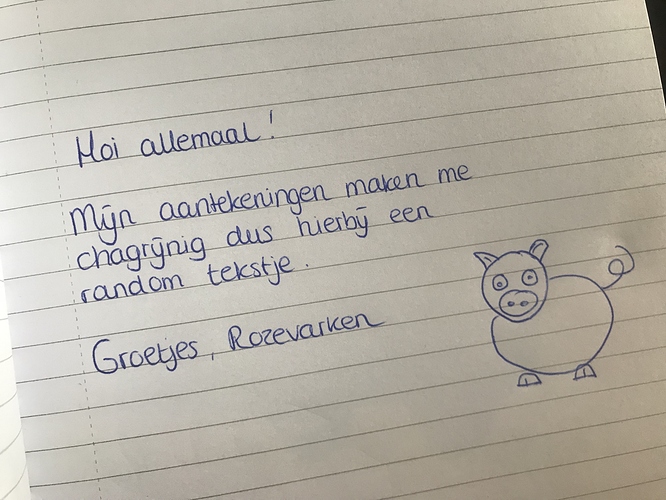 Hoi allemaal!
Mijn aantekeningen maken me
chagrijnig dus hierbij een
random tekstje.
Groetjes, Rozevarken